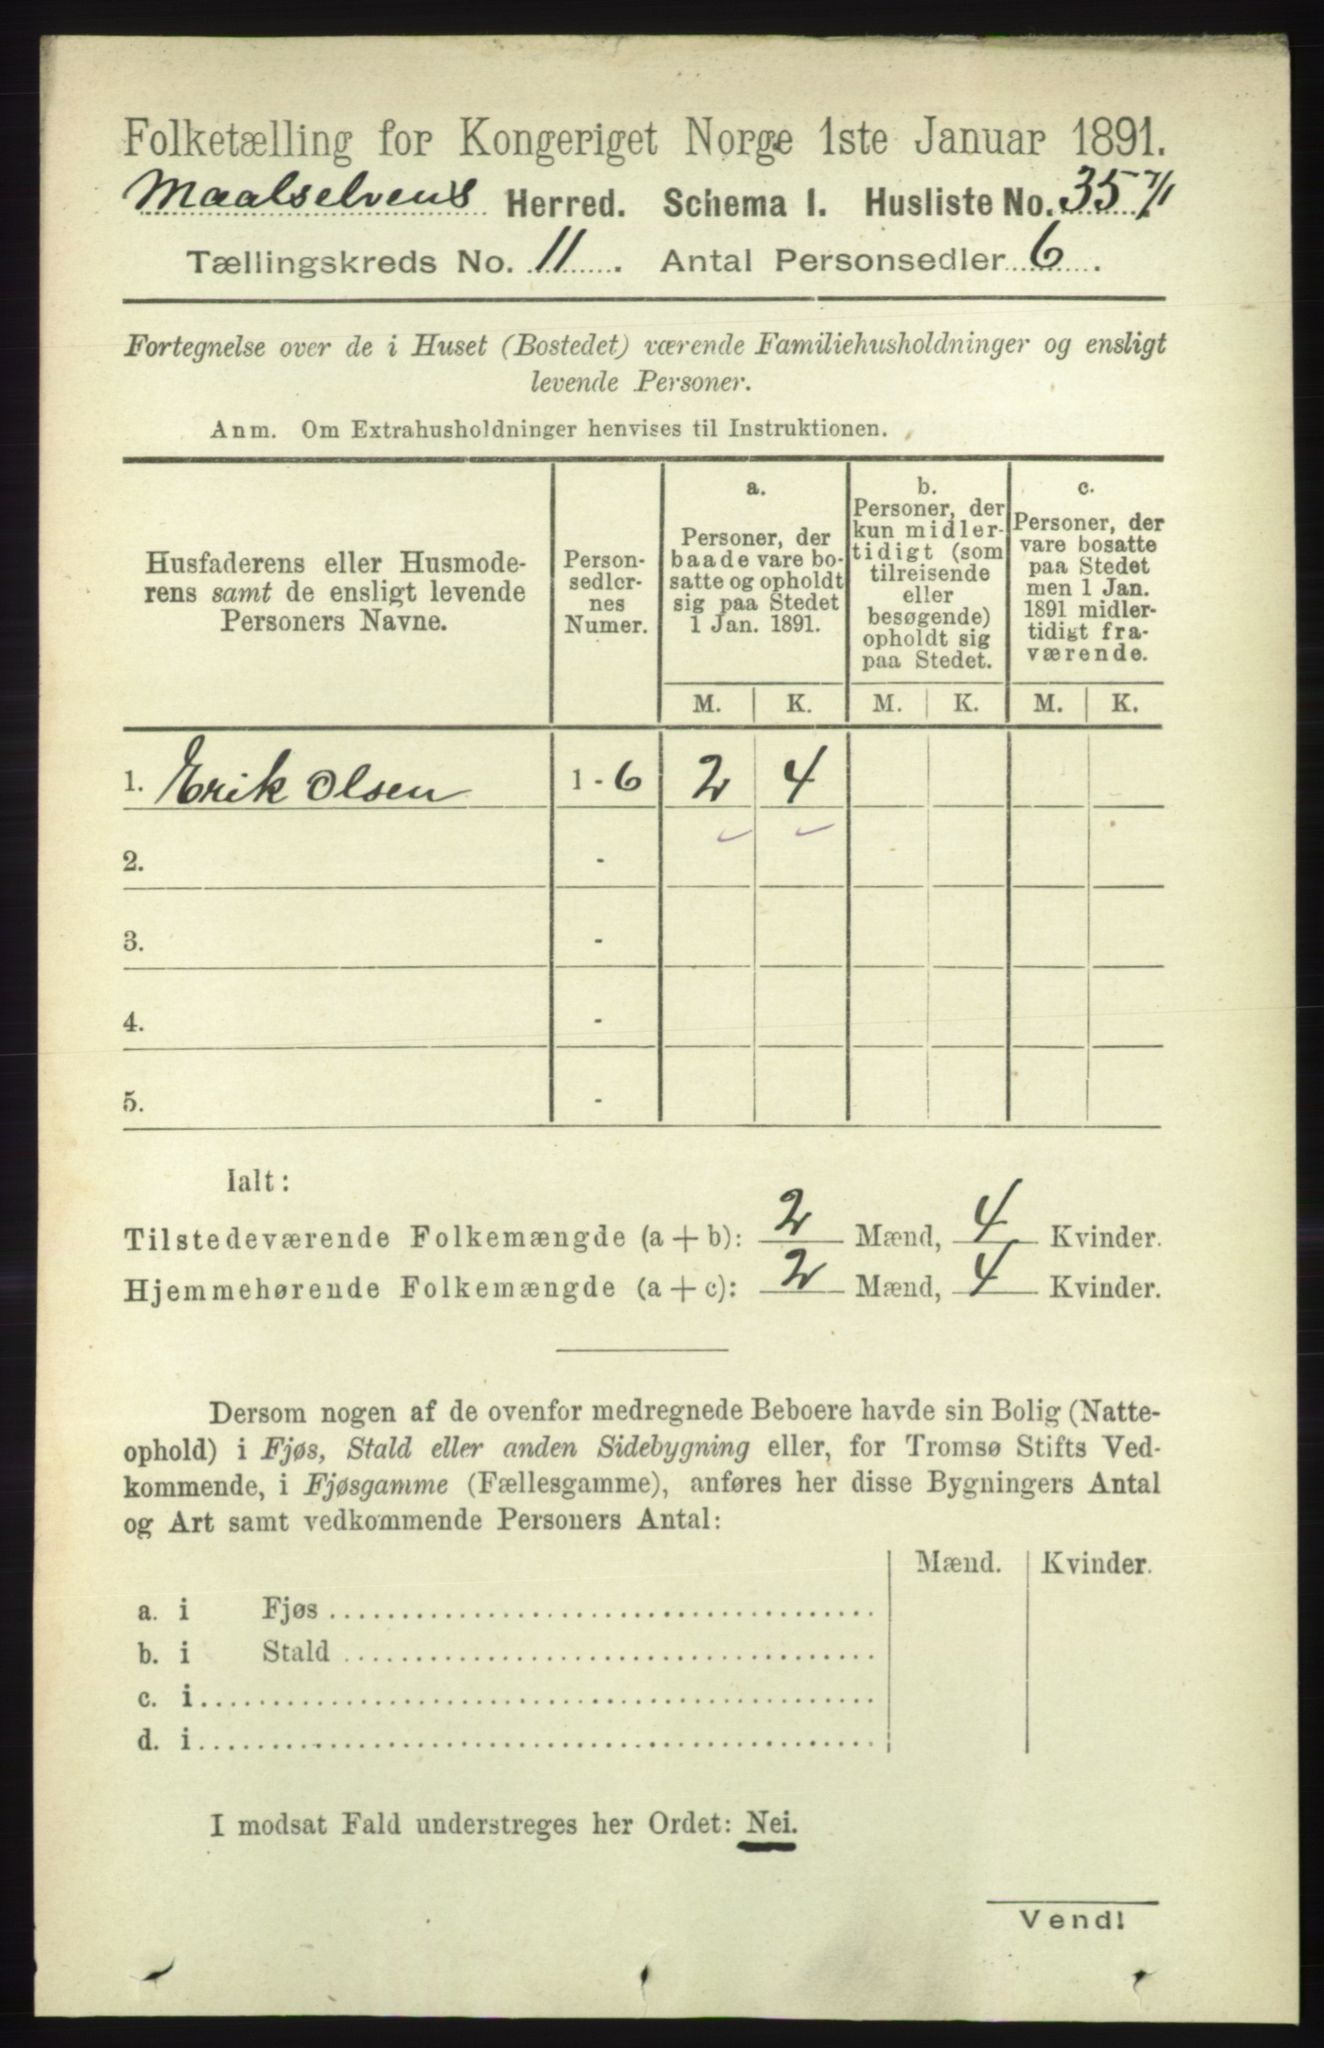 Folketælling for Kongeriget Norge 1ste Januar 1891.
Maalselvens Herred. Schema I. Husliste No. 35 7/1.
Tællingskreds No. 11. Antal Personsedler 6.
Fortegnelse over de i Huset (Bostedet) værende Familiehusholdninger og ensligt
levende Personer.
Anm. Om Extrahusholdninger henvises til Instruktionen.
Husfaderens eller Husmode-
rens samt de ensligt levende
Personers Navne.
Person-
sedler-
nes
Numer.
a.
Personer, der
baade vare bo-
satte og opholdt
sig paa Stedet
1 Jan. 1891.
b.
Personer, der
kun midler-
tidigt (som
tilreisende
eller
besøgende)
opholdt sig
paa Stedet.
c.
Personer, der
vare bosatte
paa Stedet
men 1 Jan.
1891 midler-
tidigt fra-
værende.
M. K. M. K. M. K.
1. Erik Olsen 1 - 6 2 4
2. -
3. -
4. -
5. -
Ialt:
Tilstedeværende Folkemængde (a + b): 2 Mænd, 4 Kvinder.
Hjemmehørende Folkemængde (a + c): 2 Mænd, 4 Kvinder.
Dersom nogen af de ovenfor medregnede Beboere havde sin Bolig (Natte-
ophold) i Fjøs, Stald eller anden Sidebygning eller, for Tromsø Stifts Ved-
kommende, i Fjøsgamme (Fællesgamme), anføres her disse Bygningers Antal
og Art samt vedkommende Personers Antal:
Mænd. Kvinder.
a. i Fjøs
b. i Stald
c. i
d. i
I modsat Fald understreges her Ordet: Nei.
Vend!